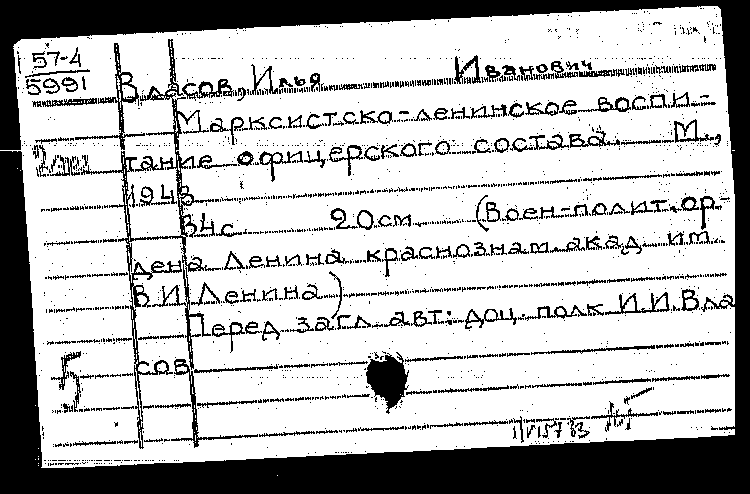 57-4
5991
Власов, Илья Иванович
Марксистско-ленинское воспи-
тание офицерского состава. М.,
1948
34с. 20см. (Воен-полит. ор-
дена Ленина краснознам. акад. им.
В.И. Ленина)
Перед загл. авт: доц. полк И.И.Вла
сов
5